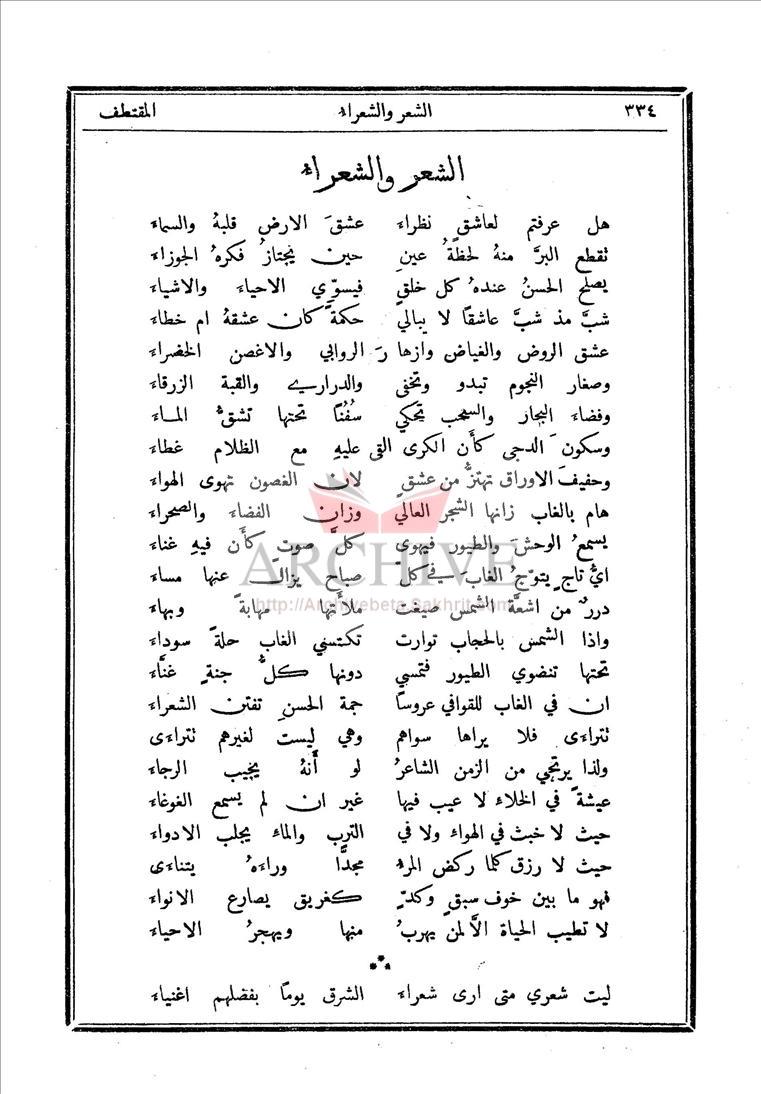 ٣٣٤ الشعر والشعراء المقتطف
الشعر والشعراء
هل عرفتم لعاشق نظراء عشقَ الارض قلبهُ والسماء
تقطع البرَّ منهُ لحظةُ عينٍ حين يجتازُ فكرهُ الجوزاء
يصلح الحسنُ عندهُ كل خلقٍ فيسوّي الاحياء والاشياء
شبَّ مذ شبَّ عاشقًا لا يبالي حكمةً كان عشقهُ ام خطاء
عشق الروض والغياض وازها رَ الروابي والاغصن الخضراء
وصغار النجوم تبدو وتخفى والدراريے والقبة الزرقاء
وفضاء البحار والسحب تحكي سُفُنًا تحتها تشقُّ الماء
وسكونَ الدجى كأَن الكرى القى عليهِ مع الظلام غطاء
وحفيفَ الاوراق تهتزُّ من عشقٍ لان الغصون تهوى الهواء
هام بالغاب زانها الشجر العالي وزان الفضاء والصحراء
يسمعُ الوحشَ والطيور فيهوى كلَّ صوتٍ كأَن فيهِ غناء
ايُّ تاجٍ يتوّجُ الغابَ في كل صباح يزال عنها مساء
دررٌ من اشعَّة الشمس صيغت ملأَتها مهابةً وبهاء
واذا الشمس بالحجاب توارت تكتسي الغاب حلةً سوداء
تحتها تنضوي الطيور فتمسي دونها كلُّ جنةٍ غنَّاء
ان في الغاب للقوافي عروسًا جمة الحسنِ تفتن الشعراء
تتراءى فلا يراها سواهم وهي ليستْ لغيرهم تتراءى
ولذا يرتجي من الزمن الشاعرُ لو أَنهُ يجيب الرجاء
عيشةً في الخلاء لا عيب فيها غير ان لم يسمع الغوغاء
حيث لا خبث في الهواء ولا في الترب والماء يجلب الادواء
حيث لا رزق كلما ركض المرء مجدًّا وراءهُ يتناءى
فهو ما بين خوف سبقٍ وكدٍّ كغريق يصارع الانواء
لا تطيب الحياة الاَّ لمن يهربُ منها ويهجرُ الاحياء
⁂
ليت شعري متى ارى شعراء الشرق يومًا بفضلهم اغنياء
ARCHIVE
http://Archivebeta.Sakhrit.com